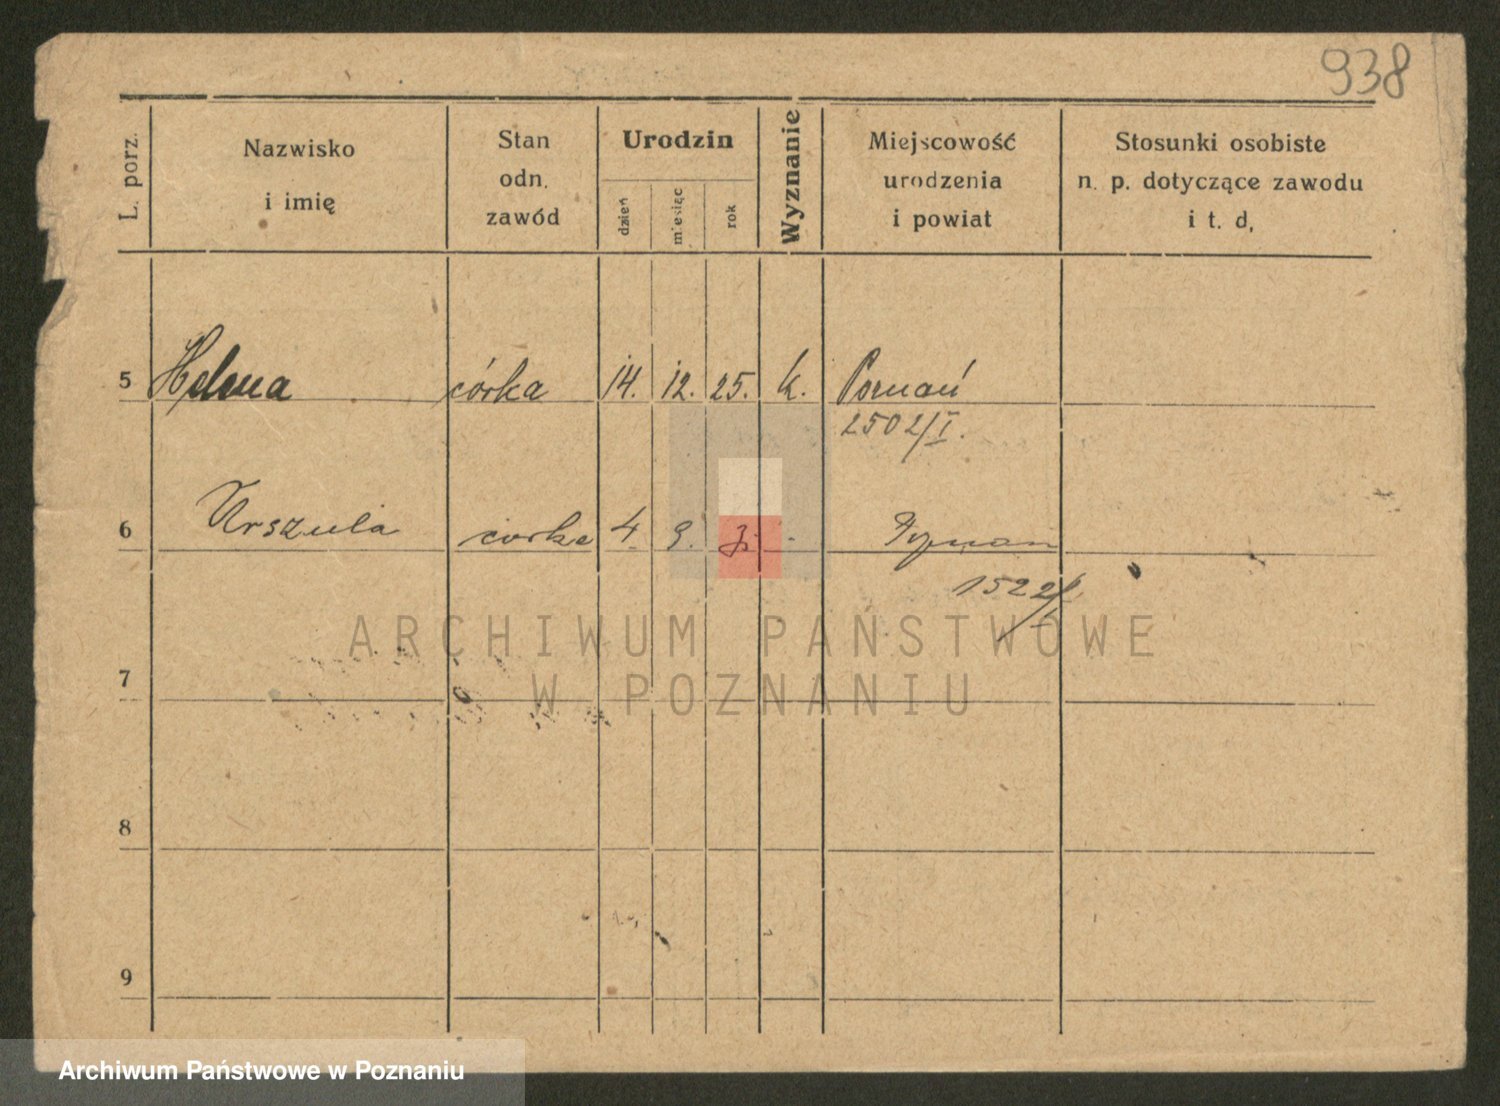 938
L. porz.
Nazwisko
i imię
Stan
odn.
zawód
Urodzin
dzień
miesiąc
rok
Wyznanie
Miejscowość
urodzenia
i powiat
Stosunki osobiste
n. p. dotyczące zawodu
i t. d.
5 Helena córka 14. 12. 25. k. Poznań
2502/I.
6 Urszula corka 4 9. Poznan
1522/I
7
8
9
ARCHIWUM PAŃSTWOWE
W POZNANIU
Archiwum Państwowe w Poznaniu